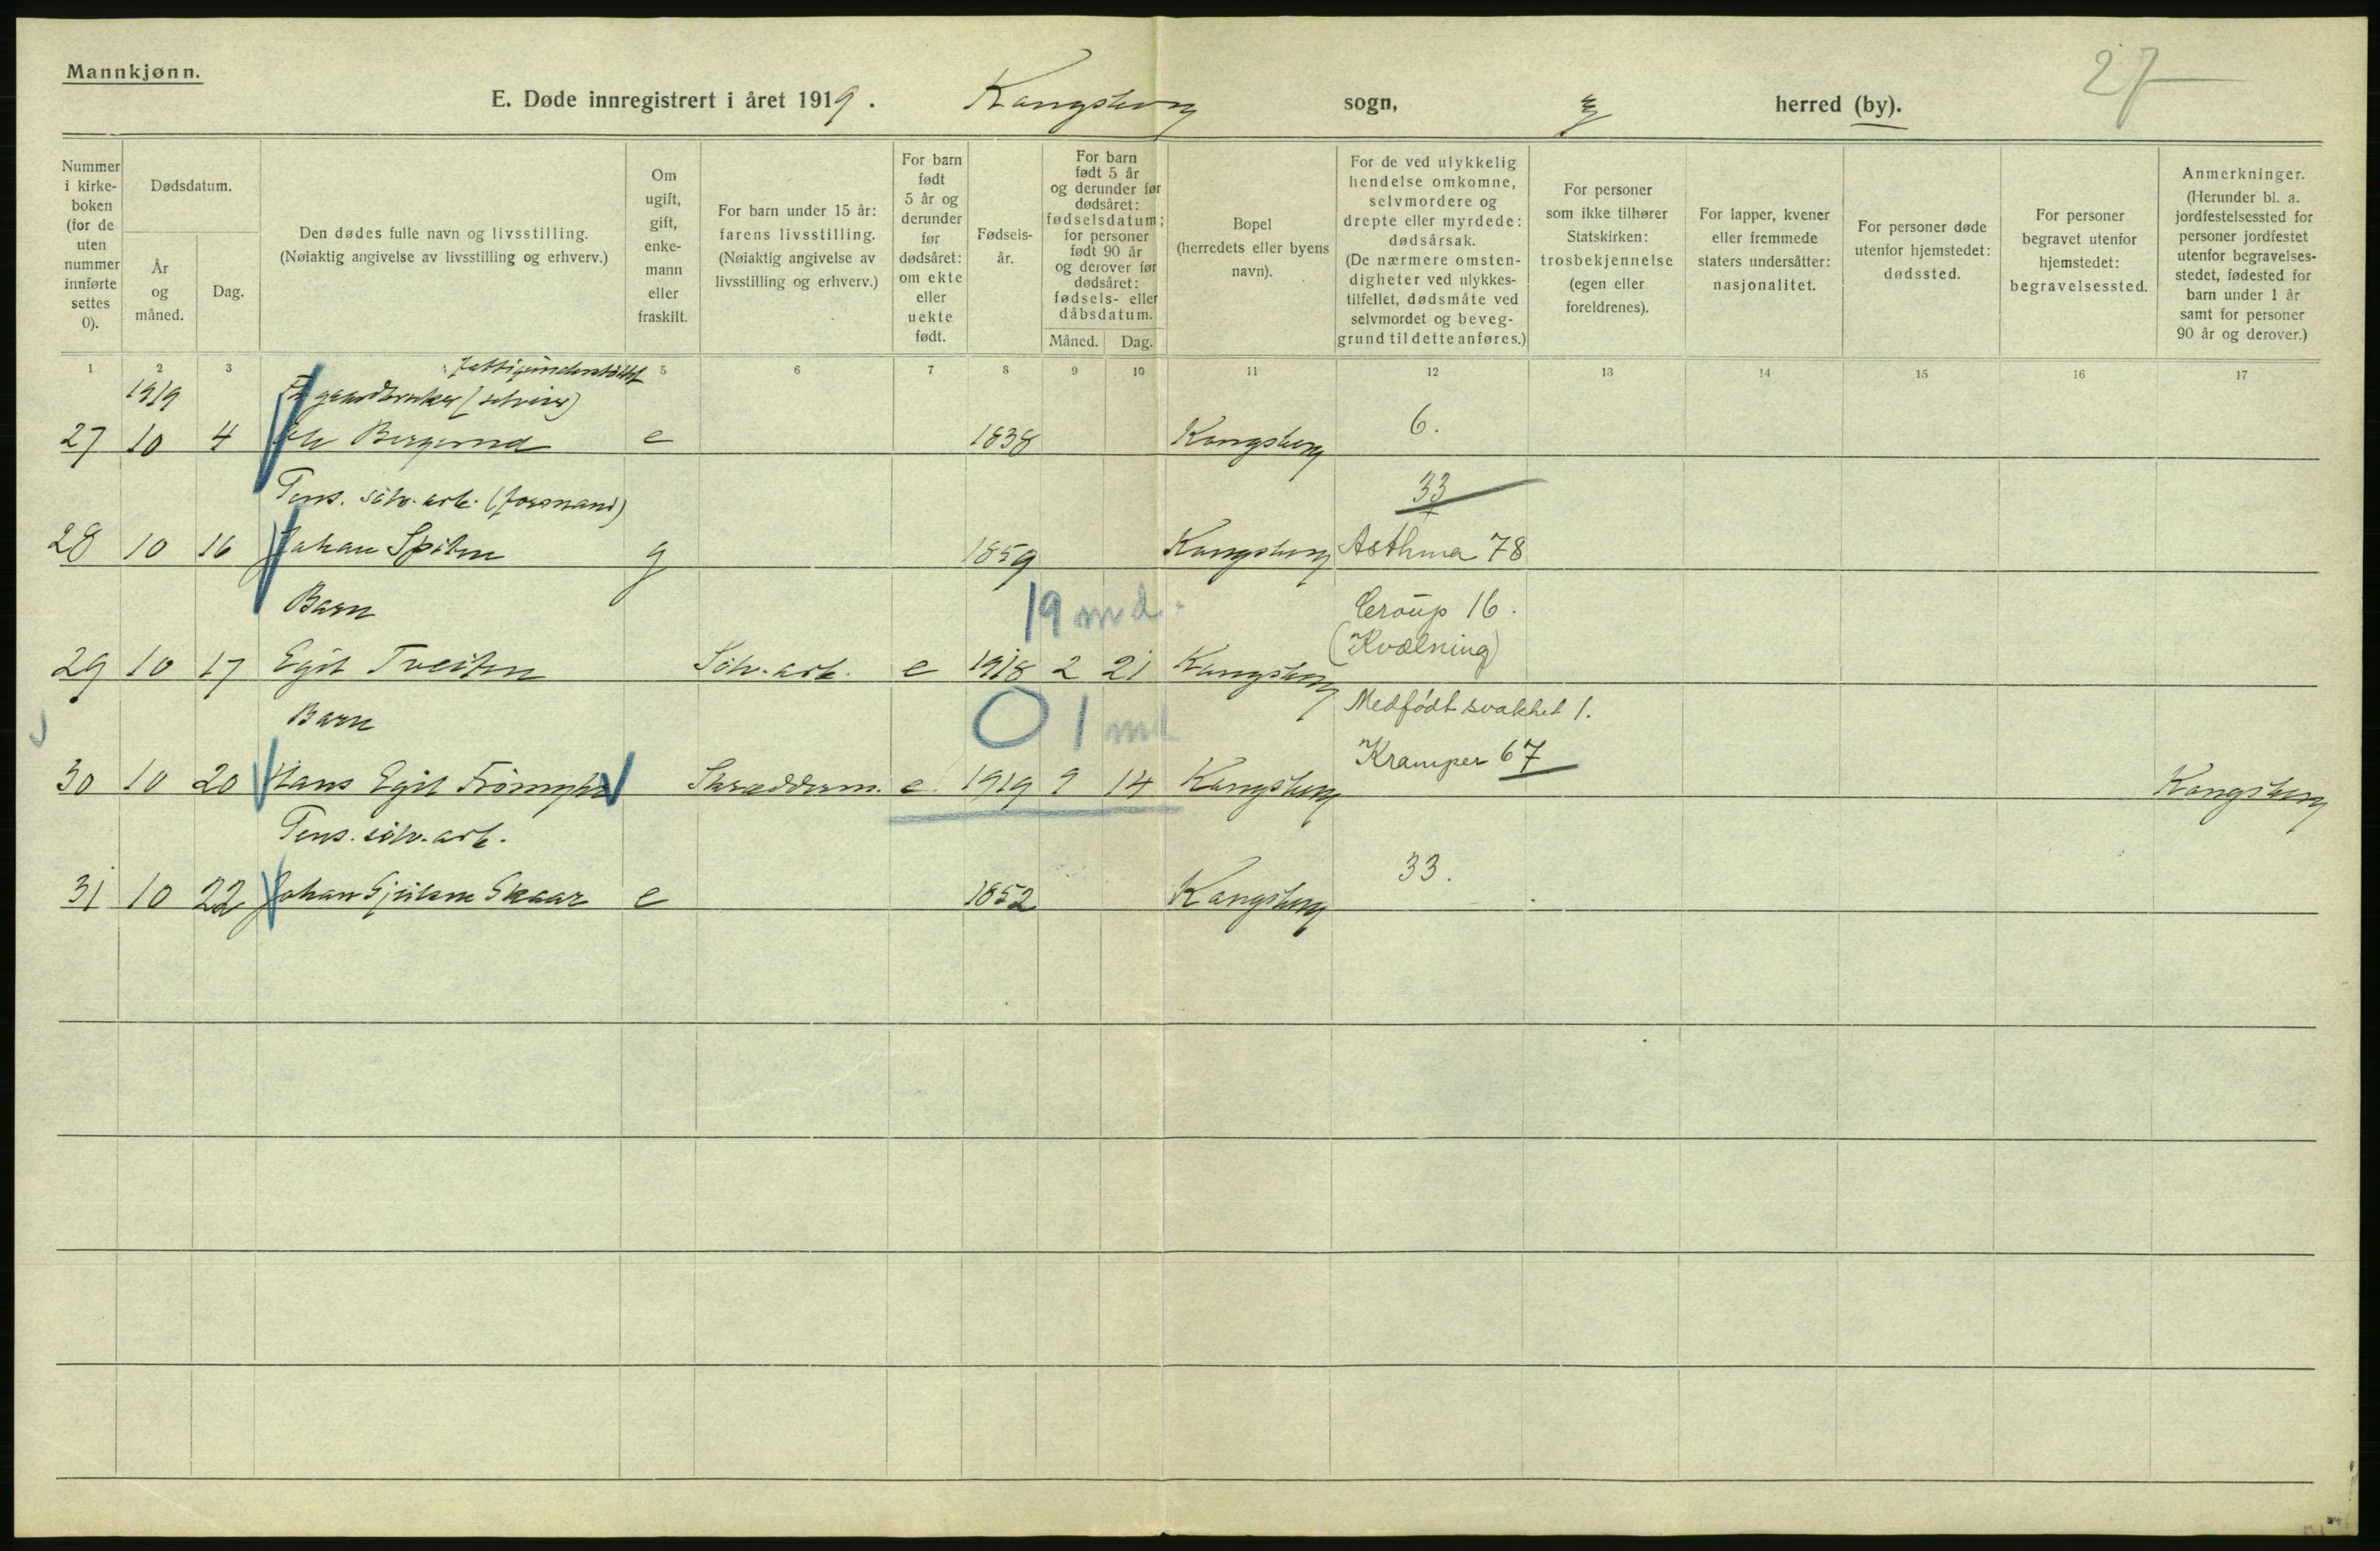 Mannkjønn.
27
E. Døde innregistrert i året 1919. Kongsberg sogn, herred (by).
Nummer i kirke-boken (for de uten nummer innførte settes 0).
Dødsdatum.
År og måned.
Dag.
Den dødes fulle navn og livsstilling.
(Nøiaktig angivelse av livsstilling og erhverv.)
Om ugift, gift, enke-mann eller fraskilt.
For barn under 15 år: farens livsstilling.
(Nøiaktig angivelse av livsstilling og erhverv.)
For barn født 5 år og derunder før dødsåret: om ekte eller uekte født.
Fødsels-år.
For barn født 5 år og derunder før dødsåret: fødselsdatum; for personer født 90 år og derover før dødsåret: fødsels- eller dåbsdatum.
Måned. Dag.
Bopel (herredets eller byens navn).
For de ved ulykkelig hendelse omkomne, selvmordere og drepte eller myrdede: dødsårsak.
(De nærmere omsten-digheter ved ulykkes-tilfellet, dødsmåte ved selvmordet og beveg-grund til dette anføres.)
For personer som ikke tilhører Statskirken: trosbekjennelse (egen eller foreldrenes).
For lapper, kvener eller fremmede staters undersåtter: nasjonalitet.
For personer døde utenfor hjemstedet: dødssted.
For personer begravet utenfor hjemstedet: begravelsessted.
Anmerkninger.
(Herunder bl. a. jordfestelsessted for personer jordfestet utenfor begravelses-stedet, fødested for barn under 1 år samt for personer 90 år og derover.)
1 2 3 5 6 7 8 9 10 11 12 13 14 15 16 17
fattigunderstøttet
1919 gaardbruker
27 10 4 Ole e 1838 Kongsberg 6.
Pens. sölv. arb. (formand) 33
28 10 16 Johan Spiten g 1859 Kongsberg Asthma 78
Barn 19 md. Croup 16.
(Kvælning)
29 10 17 Egil Tveiten Sölv. arb. e 1918 2 21 Kongsberg
Barn 0 1 md Medfødt svakhet 1.
Kramper 67
30 10 20 Hans Egil Skræddern. e. 1919 9 14 Kongsberg Kongsberg
Pens. sölv. arb.
31 10 22 Johan Skaar e 1852 Kongsberg 33.